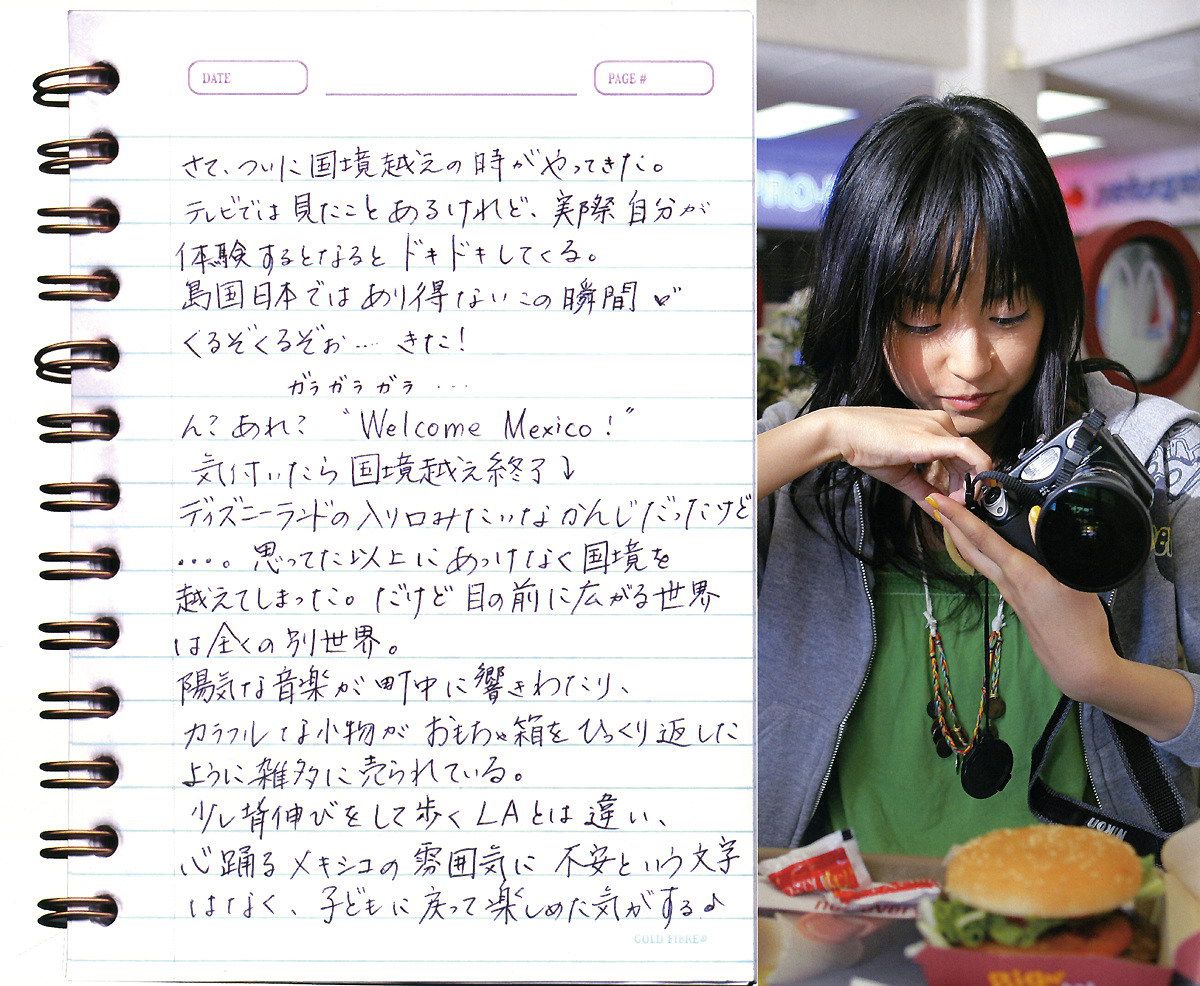 DATE
PAGE #
さて、ついに国境越えの時がやってきた。
テレビでは見たことあるけれど、実際自分が
体験するとなるとドキドキしてくる。
島国日本ではあり得ないこの瞬間♡
くるぞくるぞぉ… きた!
ガラガラガラ …
ん?あれ? “Welcome Mexico!”
気付いたら国境越え終了↓
ディズニーランドの入り口みたいなかんじだったけど
…。思ってた以上にあっけなく国境を
越えてしまった。だけど目の前に広がる世界
は全くの別世界。
陽気な音楽が町中に響きわたり、
カラフルな小物がおもちゃ箱をひっくり返した
ように雑多に売られている。
少し背伸びをして歩くLAとは違い、
心踊るメキシコの雰囲気に不安という文字
はなく、子どもに戻って楽しめた気がする♪
GOLD FIBRE®
NIKON